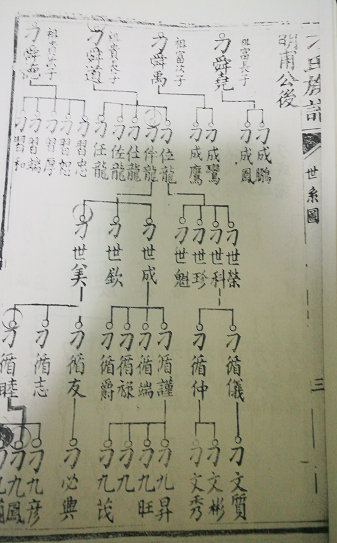 刁氏族譜
世系圖
三
明甫公後
祖富長子
刁舜堯
祖富次子
刁舜禹
祖貴長子
刁舜道
祖貴次子
刁舜
成鵬
成鳳
成鸞
成鷹
位龍
伴龍
任龍
佐龍
任龍
習忠
習恕
習厚
習端
習和
刁世榮
刁世科
刁世珍
刁世魁
刁世成
刁世欽
刁世美
刁循儀
刁循仲
刁循謹
刁循端
刁循祿
刁循爵
刁循友
刁循志
刁循睦
刁文質
刁文彬
刁文秀
刁九昇
刁九旺
刁九
刁九茂
刁必興
刁九彦
刁九鳳